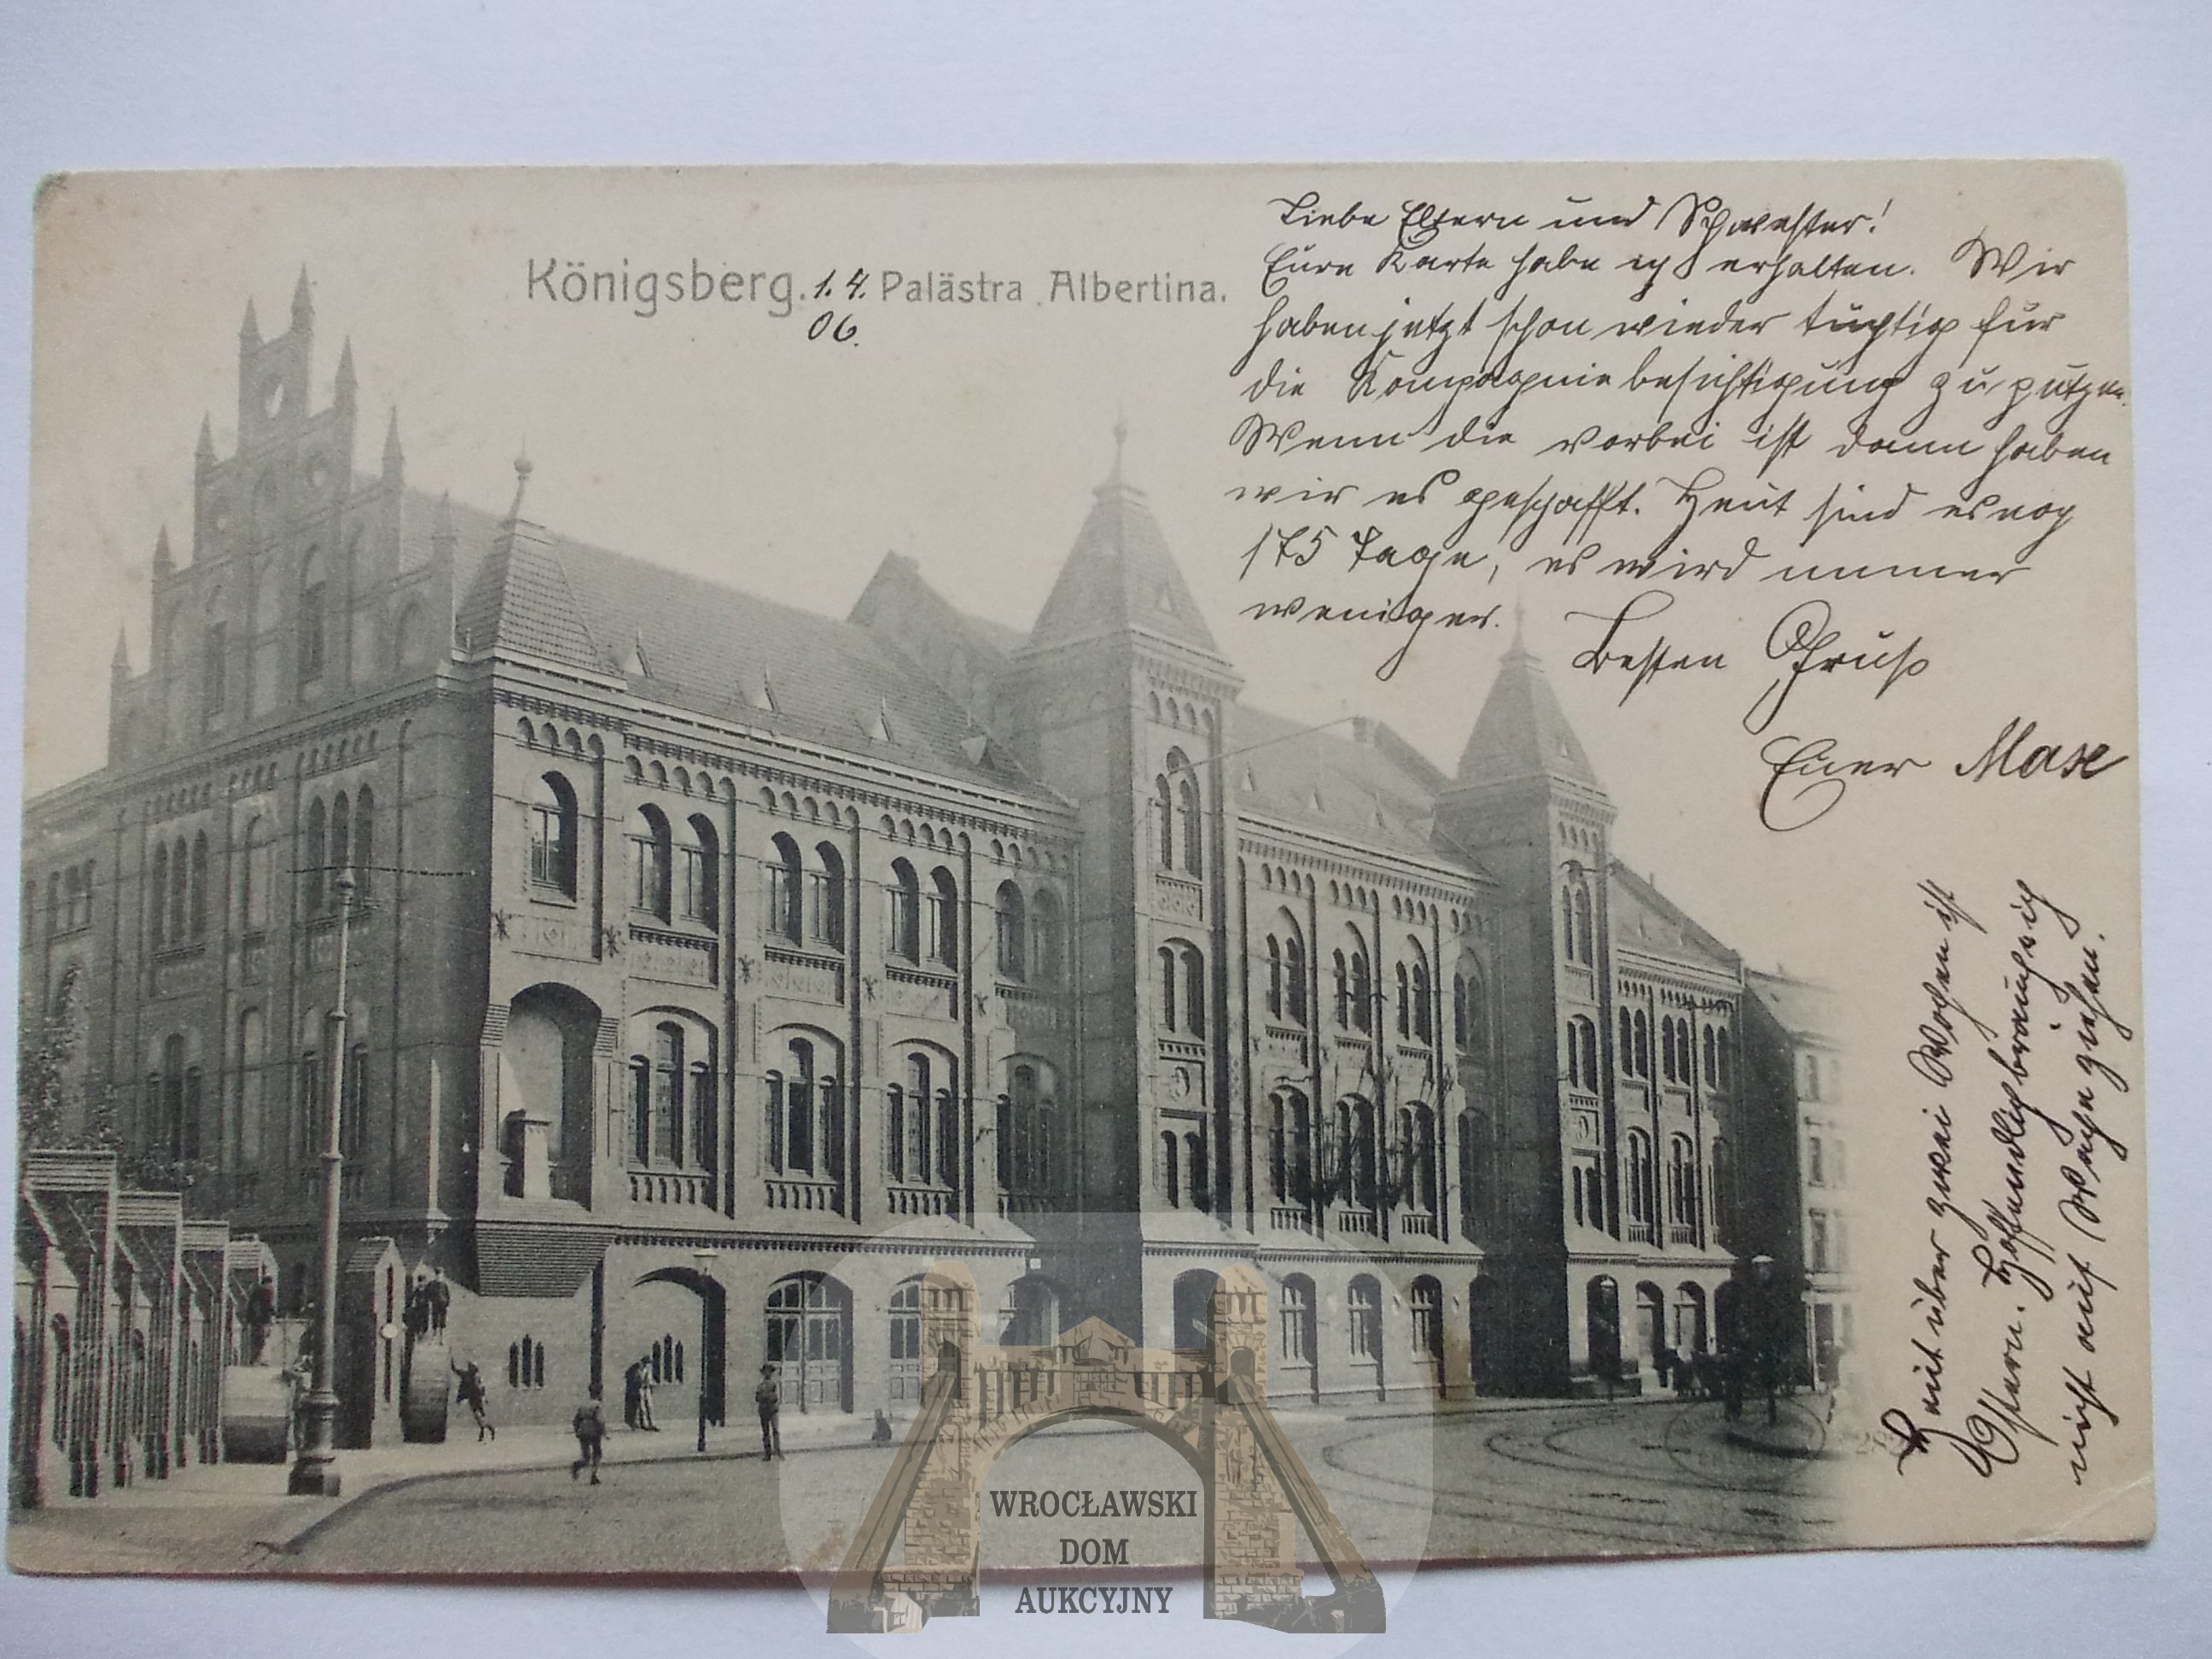 Königsberg. 1. 4. Palästra Albertina.
06.
Liebe Eltern und Schwester!
Eure Karte habe ich erhalten. Wir
haben jetzt schon wieder tüchtig für
die Kompagniebesichtigung zu putzen.
Wenn die vorbei ist dann haben
wir es geschafft. Heut sind es noch
175 Tage, es wird immer
weniger.
Besten Gruß
Euer Max
Heut über zwei Wochen ist
Ostern. Hoffendlich brauch ich
nicht auf Wache ziehen.
WROCŁAWSKI
DOM
AUKCYJNY